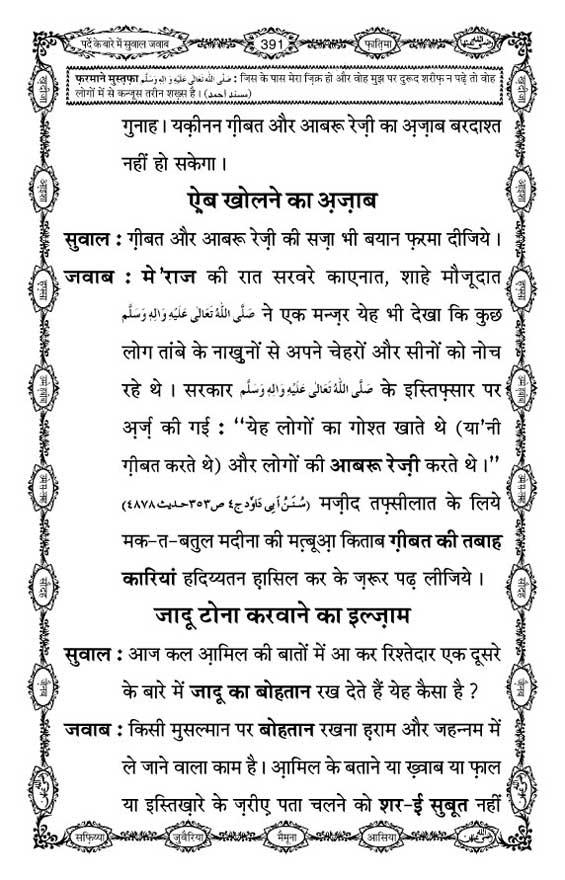 पर्दे के बारे में सुवाल जवाब
391
फ़ातिमा
फ़रमाने मुस्तफ़ा صَلَّی اللہُ تَعَالٰی عَلَیْہِ وَاٰلِہٖ وَسَلَّم : जिस के पास मेरा ज़िक्र हो और वोह मुझ पर दुरूद शरीफ़ न पढ़े तो वोह
लोगों में से कन्जूस तरीन शख़्स है । (مسند احمد)
गुनाह। यक़ीनन ग़ीबत और आबरू रेज़ी का अ़ज़ाब बरदाश्त
नहीं हो सकेगा ।
ऐ़ब खोलने का अ़ज़ाब
सुवाल : ग़ीबत और आबरू रेज़ी की सज़ा भी बयान फ़रमा दीजिये ।
जवाब : मे'राज की रात सरवरे काएनात, शाहे मौजूदात
صَلَّی اللہُ تَعَالٰی عَلَیْہِ وَاٰلِہٖ وَسَلَّم ने एक मन्ज़र येह भी देखा कि कुछ
लोग तांबे के नाख़ुनों से अपने चेहरों और सीनों को नोच
रहे थे । सरकार صَلَّی اللہُ تَعَالٰی عَلَیْہِ وَاٰلِہٖ وَسَلَّم के इस्तिफ़्सार पर
अ़र्ज़ की गई : “येह लोगों का गोश्त खाते थे (या'नी
ग़ीबत करते थे) और लोगों की आबरू रेज़ी करते थे ।”
(سُنَنُ اَبِی دَاوٗد ج٤ ص٣٥٣ حدیث ٤٨٧٨) मज़ीद तफ़्सीलात के लिये
मक-त-बतुल मदीना की मत़्बूआ़ किताब ग़ीबत की तबाह
कारियां हदिय्यतन ह़ासिल कर के ज़रूर पढ़ लीजिये ।
जादू टोना करवाने का इल्ज़ाम
सुवाल : आज कल आ़मिल की बातों में आ कर रिश्तेदार एक दूसरे
के बारे में जादू का बोहतान रख देते हैं येह कैसा है ?
जवाब : किसी मुसल्मान पर बोहतान रखना ह़राम और जहन्नम में
ले जाने वाला काम है। आ़मिल के बताने या ख़्वाब या फ़ाल
या इस्तिख़ारे के ज़रीए पता चलने को शर-ई सुबूत नहीं
सफ़िय्या
जुवैरिया
मैमूना
आसिया